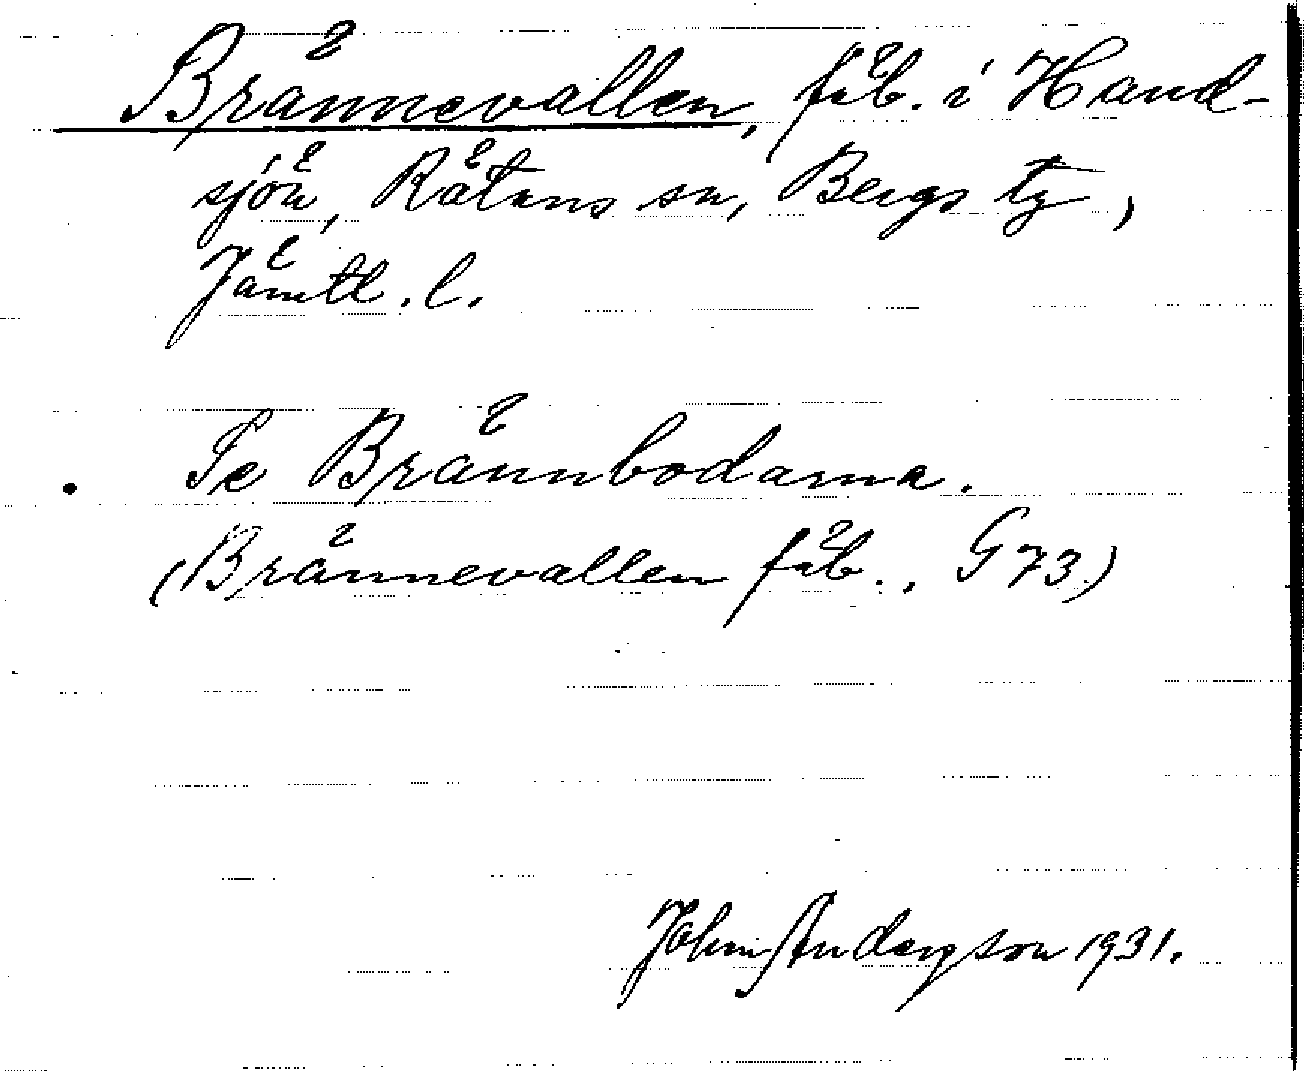 Brännevallen, fäb. i Hand-
sjön, Rätans sn, Bergs tg,
Jämtl. l.
Se Brännbodarna.
(Brännevallen fäb., G73)
John Anderson 1931.